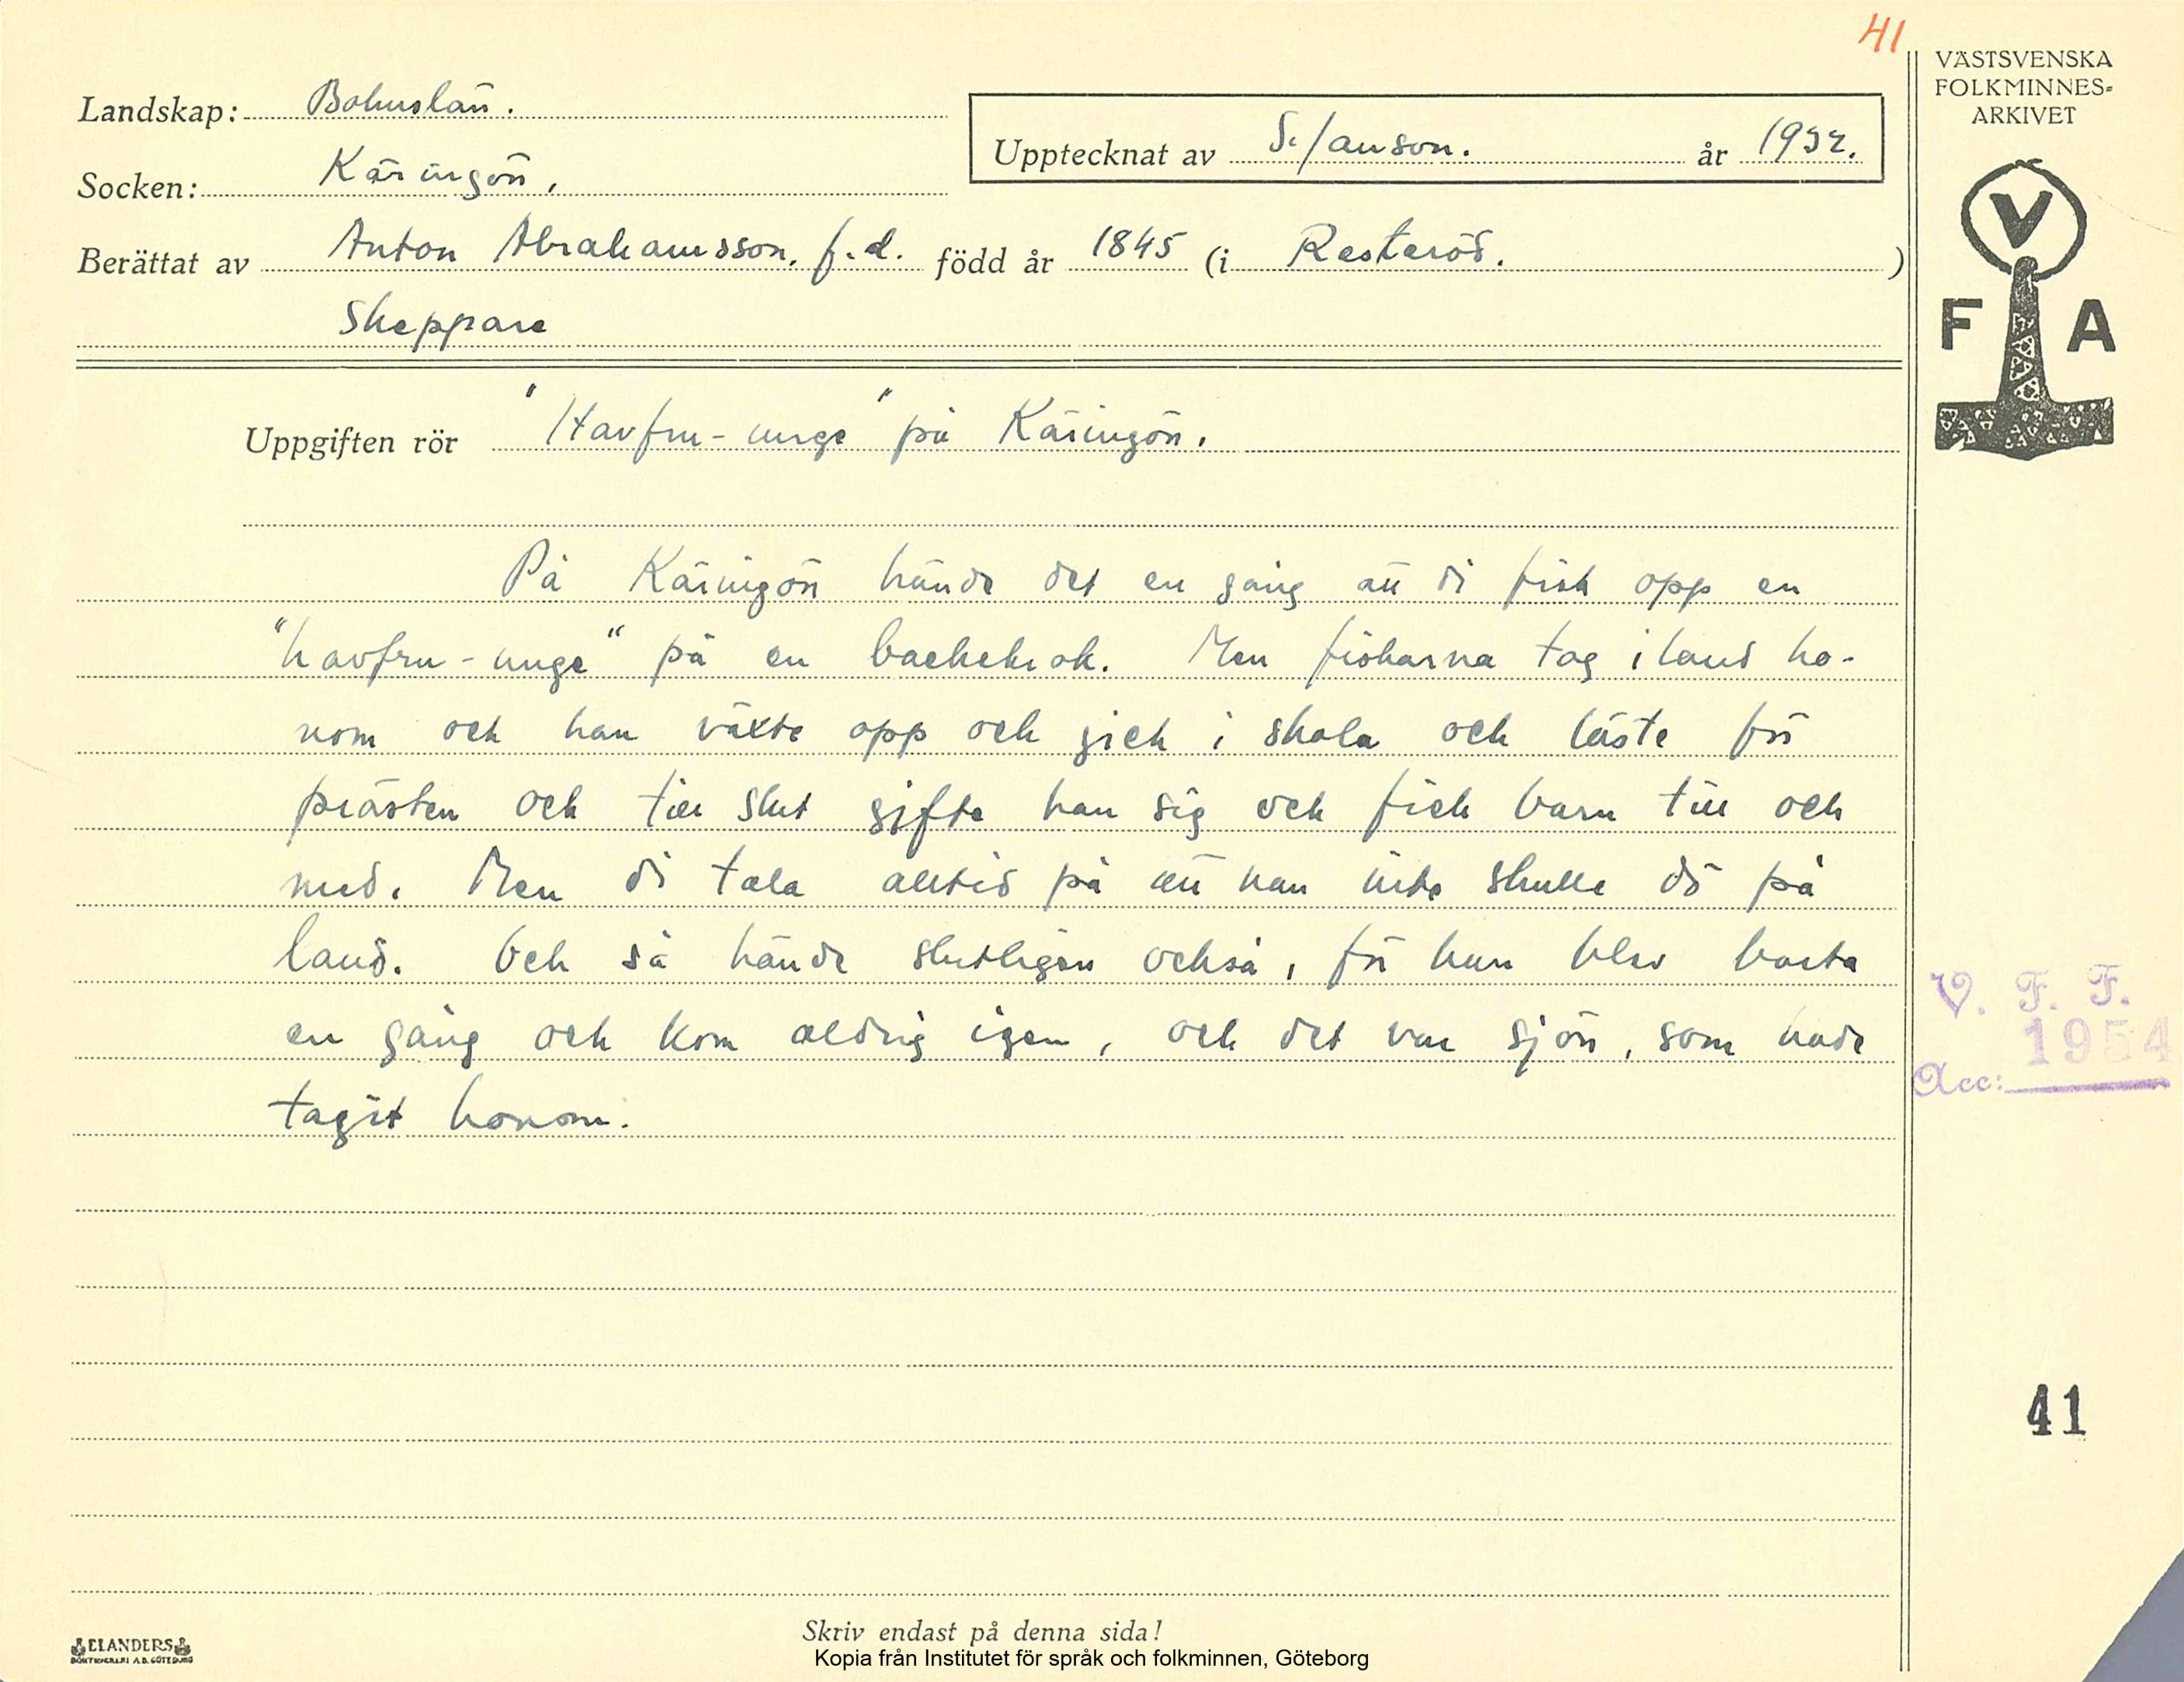 41
VÄSTSVENSKA
FOLKMINNES-
ARKIVET
Landskap: Bohuslän.
Upptecknat av S. Janson. år 1932.
Socken: Käringön,
Berättat av Anton Abrahamsson, f.d. född år 1845 (i Resteröd. )
Skeppare
V
F A
Uppgiften rör "Havfru-unge" på Käringön.
På Käringön hände det en gång att di fisk opp en
"havfru-unge" på en backekrok. Men fiskarna tog i land ho-
nom och han växte opp och gick i skola och läste för
prästen och till slut gifte han sig och fick barn till och
med. Men di tala alltid på att han inte skulle dö på
land. Och så hände slutligen också, för han blev borta
en gång och kom aldrig igen, och det var sjön, som hade
tagit honom.
V. F. F.
1954
Acc:
41
Skriv endast på denna sida!
ELANDERS
BOKTRYCKERI A.B. GÖTEBORG
Kopia från Institutet för språk och folkminnen, Göteborg